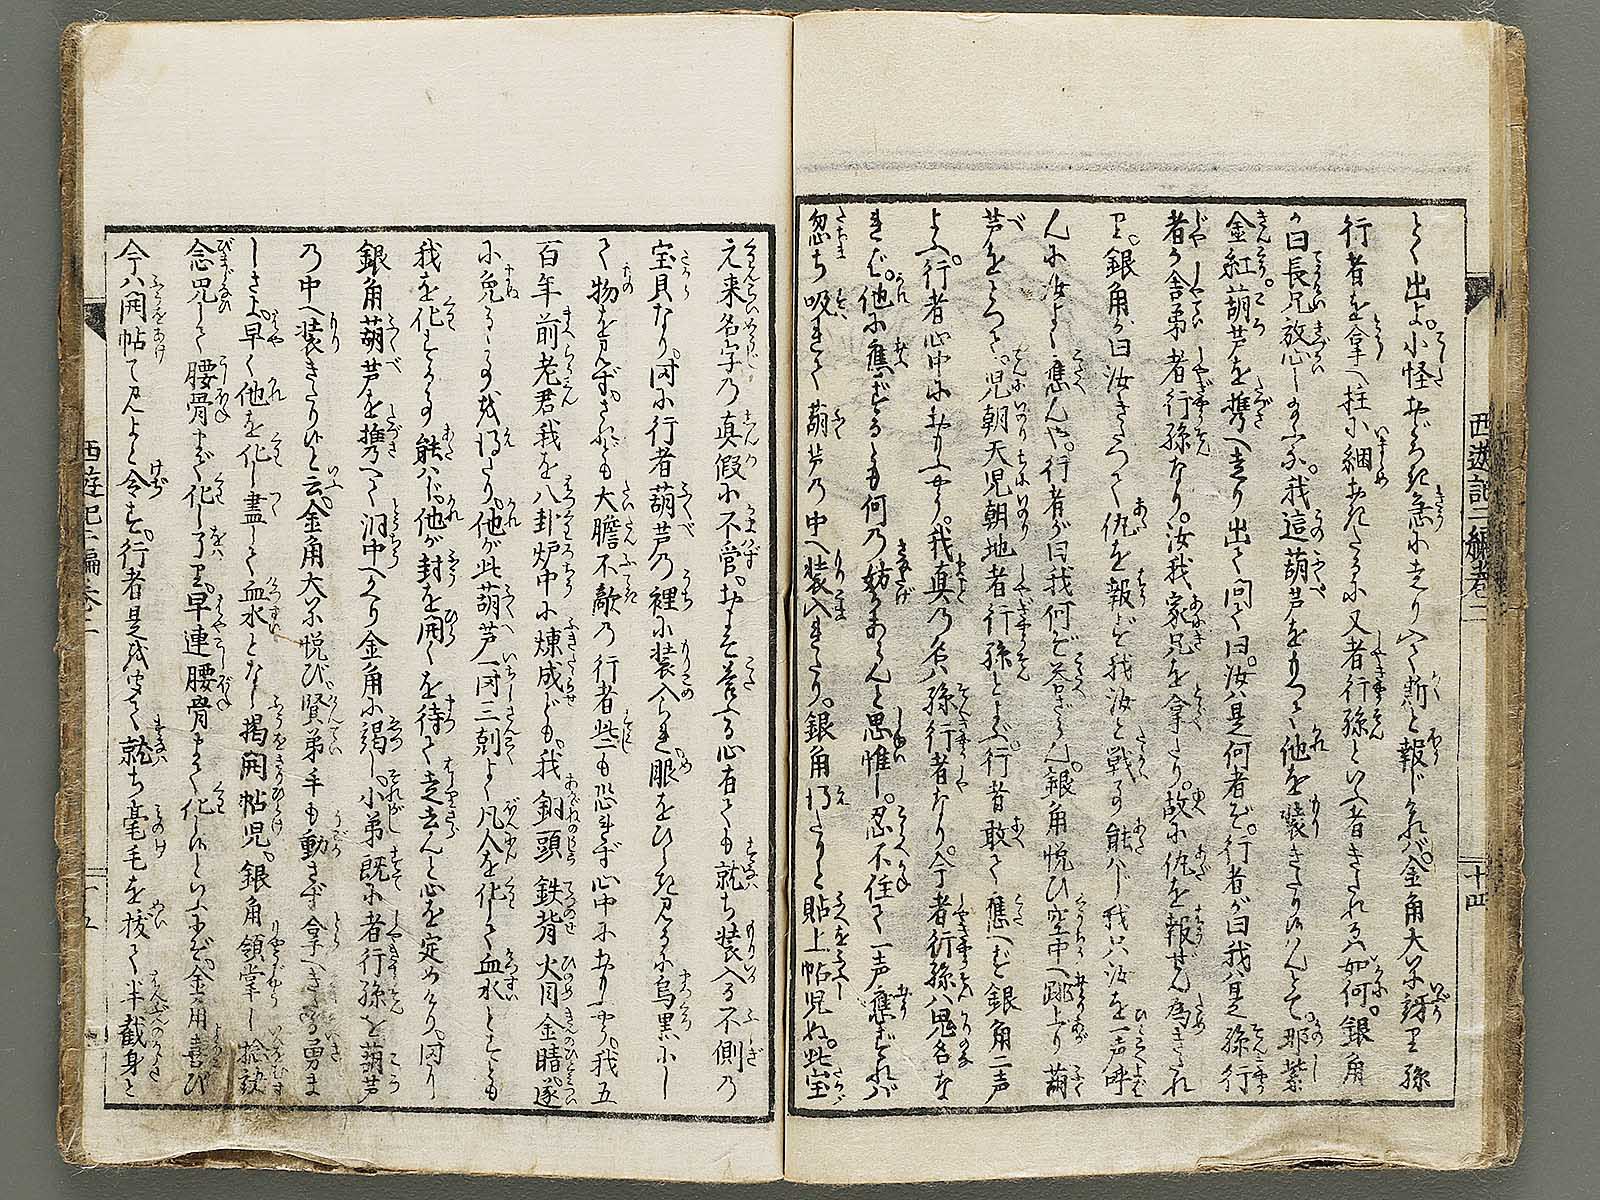 とく出よ。小怪おどろき急に走り入て斯と報じければ金角大に訝り孫
行者を拿へ柱に綑おきたるに又者行孫といふ者きたれるは如何。銀角
が曰長兄放心し玉へ。我這葫芦をもつて他を装きたり候はんとて。那紫
金紅葫芦を携へ走り出て問て曰。汝は是何者ぞ。行者が曰我は是孫行
者が舎弟者行孫なり。汝我家兄を拿たり。故に仇を報ぜん為きたれ
り。銀角が曰汝きたつて仇を報ど我汝と戦ふ能はじ我只汝を一声呼
んに汝よく應んや。行者が曰我何ぞ答ざらん。銀角悦び空中へ跳上り葫
芦をとつて。児朝天児朝地者行孫とよぶ。行者敢て應へず銀角二声
よぶ。行者心中におもふやう。我真の名は孫行者なり。今者行孫は鬼名な
れば。他に應ずるとも何の妨かあらんと思惟し。忍不住て一声應ずれば
忽ち吸れて葫芦の中へ装入れたり。銀角得たりと貼上帖児ぬ。此宝
元来名字の真假に不管。おもそ答る心有ても就ち装入る不側の
宝貝なり。因に行者葫芦の裡に装入られ眼をひらき見るに烏黒にし
て物を見ず。されども大膽不敵の行者些も恐れず心中におもふやう。我五
百年前老君我を八卦炉中に煉成ども。我銅頭鉄背火目金睛遂
に免るゝ事を得たり。他が此葫芦一時三刻よく凡人を化して血水とすとも
我を化する事能はじ。他が封を開くを待て走去んと心を定めけり。因り
銀角葫芦を携へて洞中へかへり金角に謁し。小弟既に者行孫を葫芦
の中へ装きたり候と云。金角大に悦び賢弟手も動さず拿へきたる勇ま
しさよ。早く他を化し盡して血水となし揭開帖児。銀角領掌し捻訣
念咒して腰骨まで化し了り。早連腰骨まで化し候といふにぞ。金角喜び
今は開帖て見よと令す。行者是を聞て就ち毫毛を抜て半截身と
西遊記二編巻二
十四
西遊記二編巻二
十五